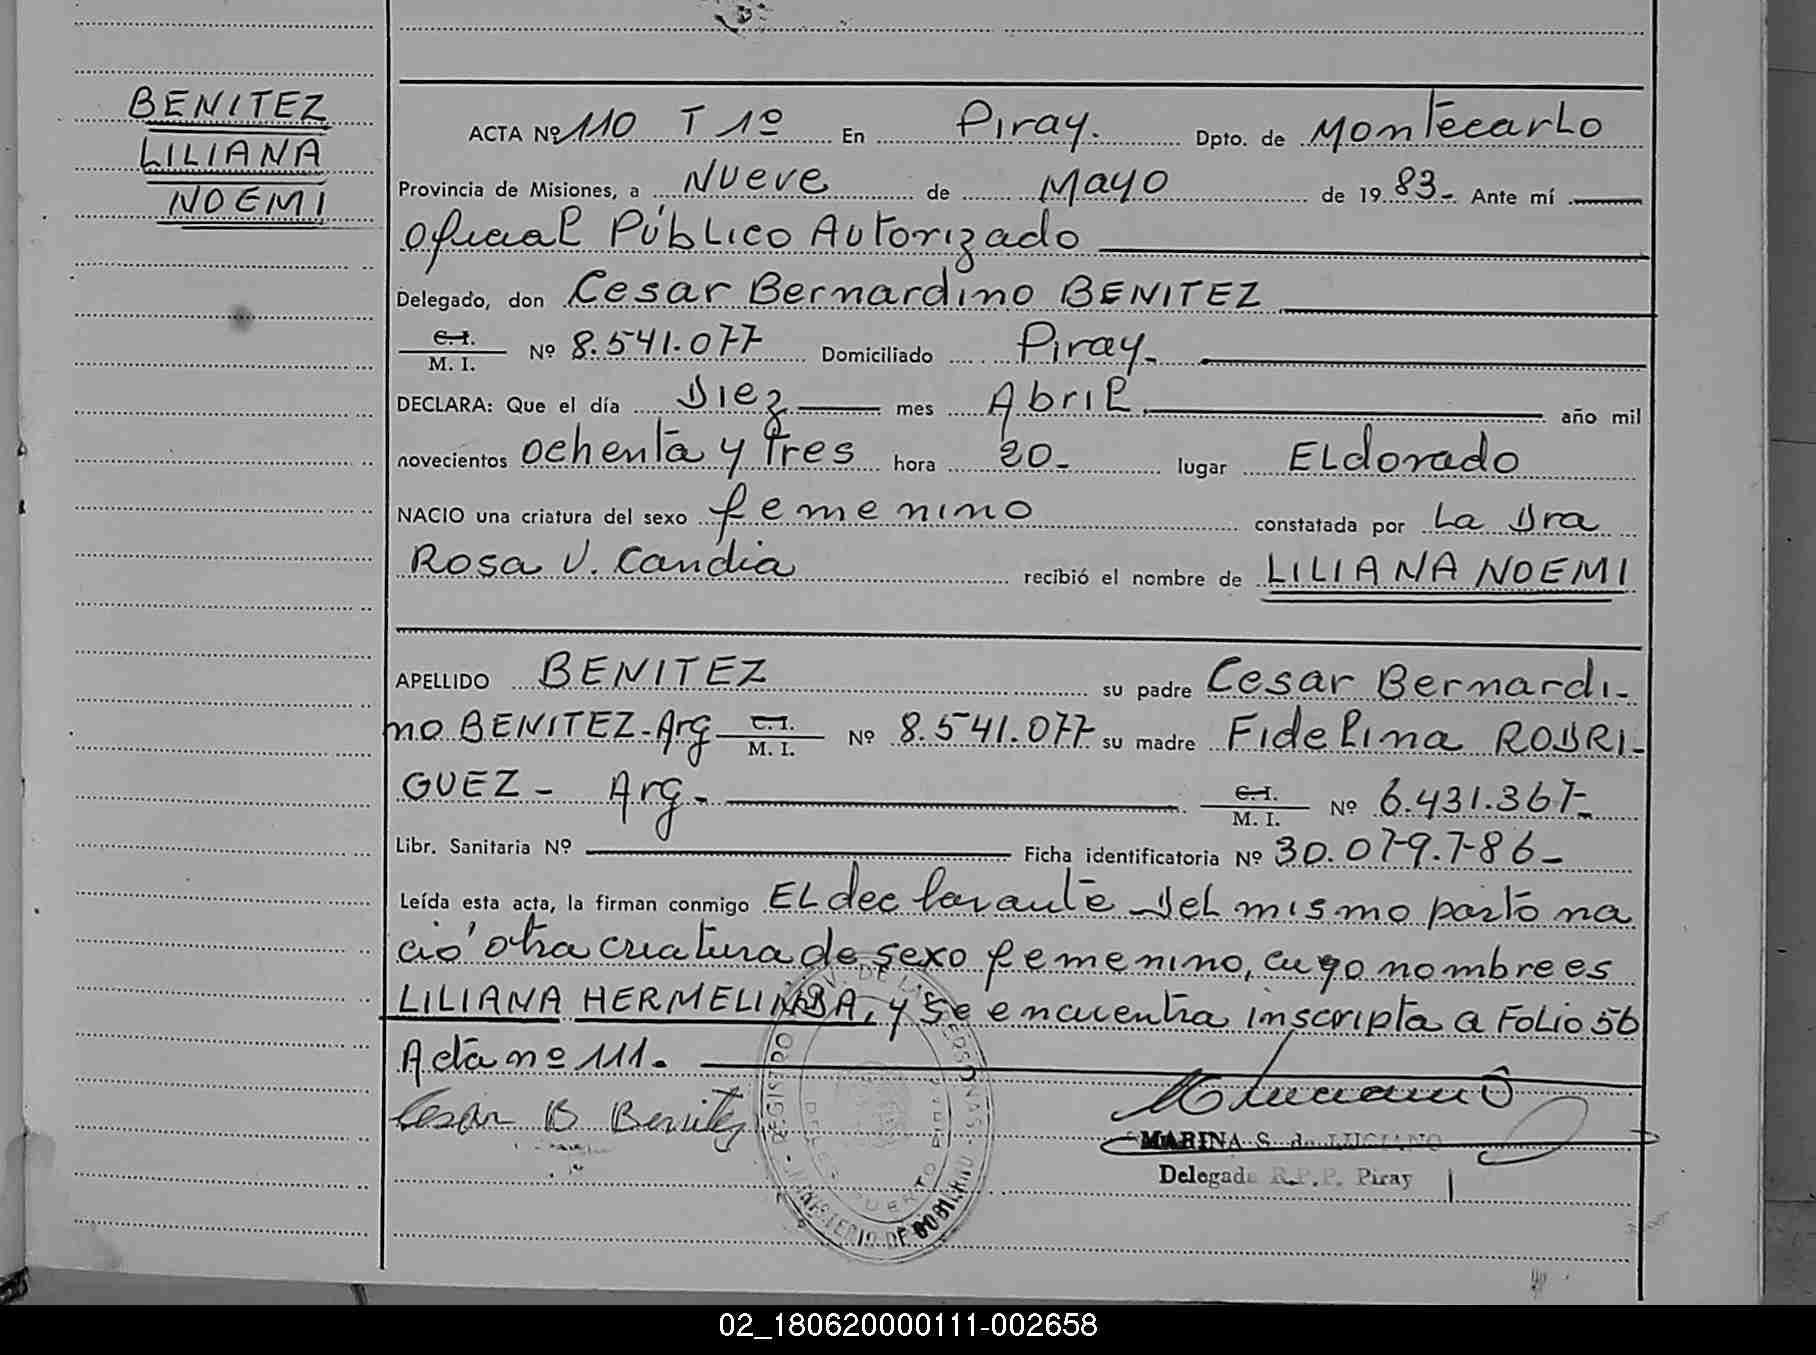 BENITEZ
LILIANA
NOEMI
ACTA Nº 110 T 1º En Piray. Dpto. de Montecarlo
Provincia de Misiones, a Nueve de Mayo de 1983- Ante mí
oficial Público Autorizado
Delegado, don Cesar Bernardino BENITEZ
C.I.
M. I. Nº 8.541.077 Domiciliado Piray-
DECLARA: Que el día Diez mes Abril año mil
novecientos ochenta y tres hora 20- lugar ELdorado
NACIO una criatura del sexo femenino constatada por La Dra
Rosa V. Candia recibió el nombre de LILIANA NOEMI
APELLIDO BENITEZ su padre Cesar Bernardi-
no BENITEZ-Arg C.I. M. I. Nº 8.541.077 su madre Fidelina RODRI-
GUEZ- Arg- C.I. M. I. Nº 6.431.367-
Libr. Sanitaria Nº Ficha identificatoria Nº 30.079.786-
Leída esta acta, la firman conmigo EL declarante Del mismo parto na
ció otra criatura de sexo femenino, cuyo nombre es
LILIANA HERMELINDA, y se encuentra inscripta a FoLio 56
Acta nº 111.
Cesar B Benitez
MARINA S. de LUCIANO
Delegada R.P.P. Piray
02_180620000111-002658